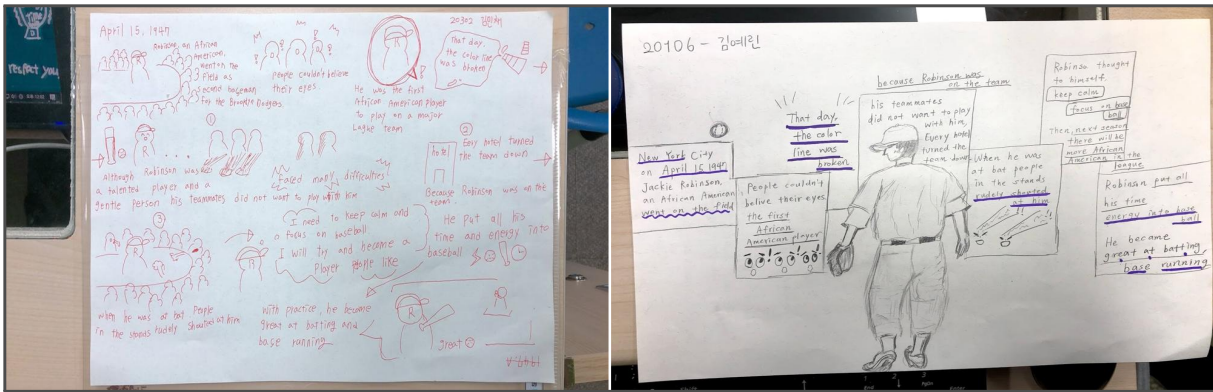 respect you
April 15, 1947
20302
Robinson, an African
American,
went on the
Field as
second baseman
for the Brooklyn Dodgers.
people couldn't believe
their eyes
R
He was the first
African American player
To play on a major
Lague team
That day
the color line
was broken
①
R
Although Robinson was
a talented player and a
gentle person his teammates did not want to play with him
Faced many difficulties
②
hotel
Evry hotel turned
the team down
Because Robinson was on the
team
③
R
when he was at bat people
in the stands rudely shouted at him
I need to keep calm and
focus on baseball
I will try and become a
player people like
He put all his
time and energy into
baseball
with practice, he became
great at batting and
base running
R
Great
20106 - 김예린
New York City
on April 15 1947
Jackie Robinson,
an African American
went on the field
That day,
the color
line was
broken
People couldn't
belive their eyes.
the first
African
American player
because Robinson was
on the team
his teammates
did not want to play
with him,
Every hotel
turned the
team down
When he was
at bat people
in the stands
rudely shouted
at him
Robinson thought
to himself.
keep calm
focus on base
ball
Then, next season
there will be
more African
American in the
league
Robinson put all
his time
energy into base
ball
He became
great at batting,
base running